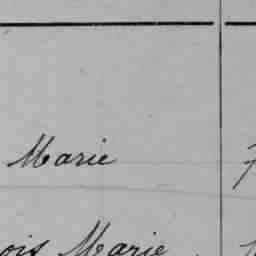 Marie
ois Marie